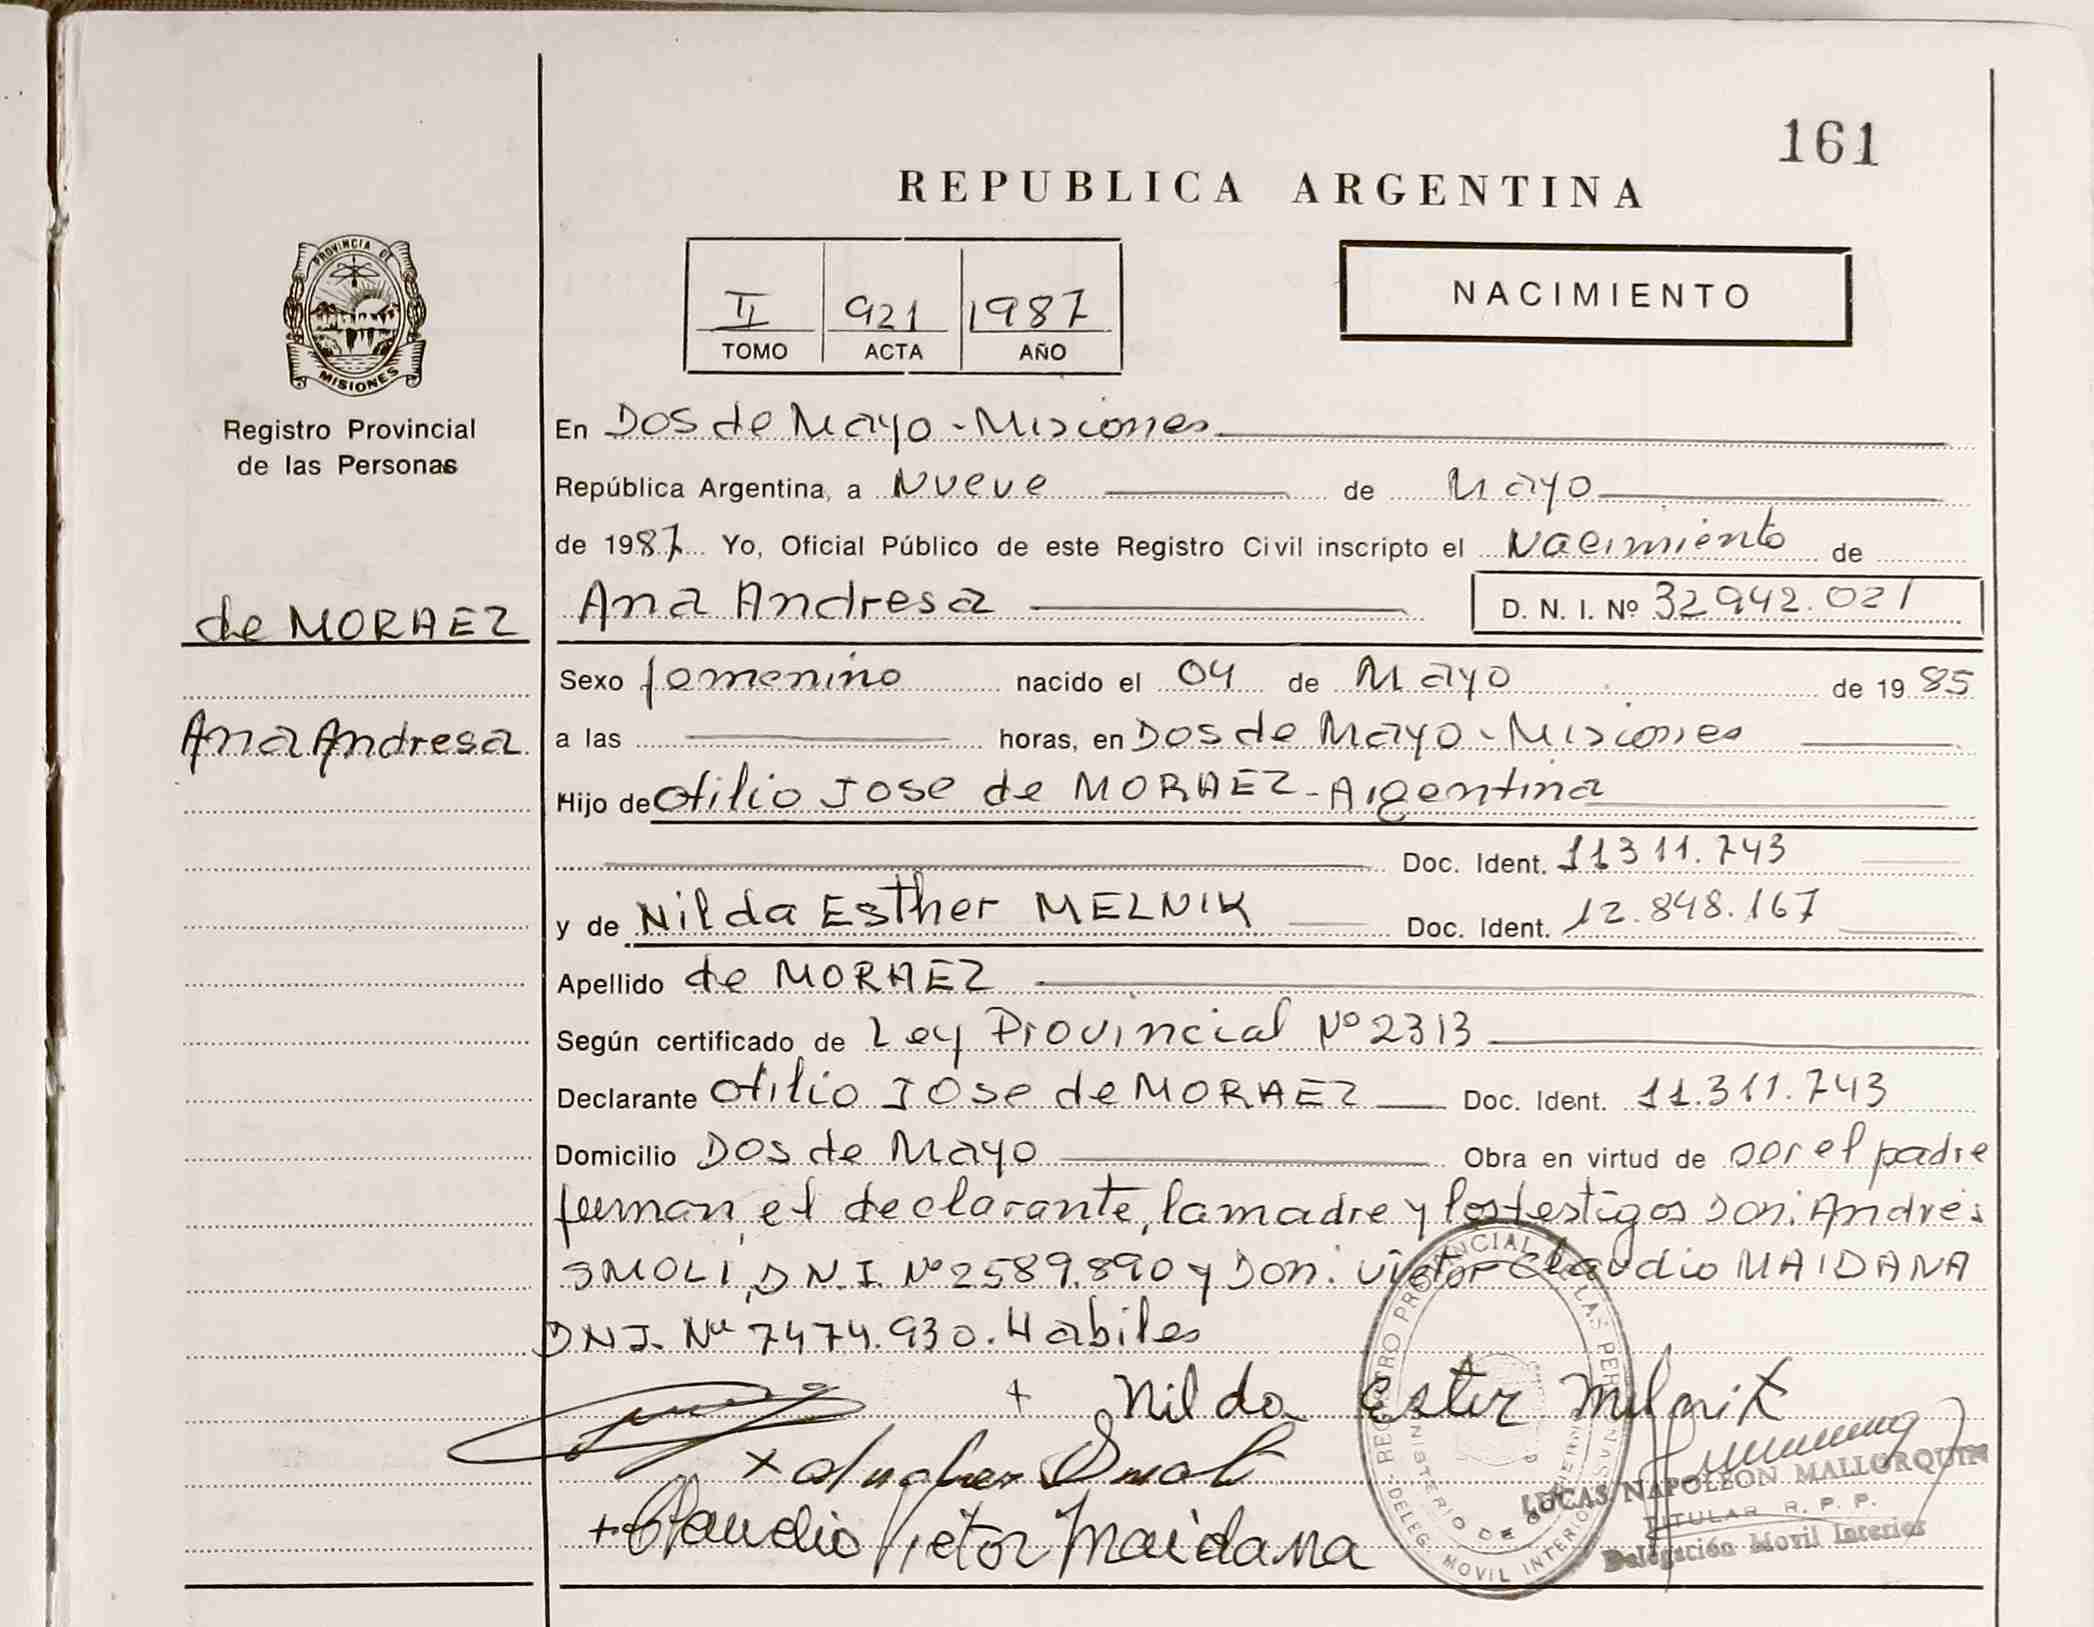 161
REPUBLICA ARGENTINA
PROVINCIA DE
MISIONES
Registro Provincial
de las Personas
II 921 1987
TOMO ACTA AÑO
NACIMIENTO
En Dos de Mayo - Misiones
República Argentina, a Nueve de Mayo
de 1987 Yo, Oficial Público de este Registro Civil inscripto el Nacimiento de
de MORAEZ
Ana Andresa
D. N. I. Nº 32942.021
Sexo femenino nacido el 04 de Mayo de 1985
Ana Andresa
a las horas, en Dos de Mayo - Misiones
Hijo de Otilio Jose de MORAEZ - Argentina
Doc. Ident. 11311.743
y de Nilda Esther MELNIK Doc. Ident. 12.848.167
Apellido de MORAEZ
Según certificado de Ley Provincial Nº 2313
Declarante Otilio Jose de MORAEZ Doc. Ident. 11.311.743
Domicilio Dos de Mayo Obra en virtud de ser el padre
firman, el declarante, la madre y los testigos Don: Andrés
SMOLI, D.N.I. Nº 2589.890 y Don: Victor Claudio MAIDANA
DNI. Nº 7474.930. Habiles
+ Nilda Ester Melnik
x
+ Claudio Victor Maidana
REGISTRO PROVINCIAL DE LAS PERSONAS
MINISTERIO DE GOBIERNO
DELEG. MOVIL INTERIOR
LUCAS NAPOLEON MALLORQUIN
TITULAR R. P. P.
Delegación Movil Interior